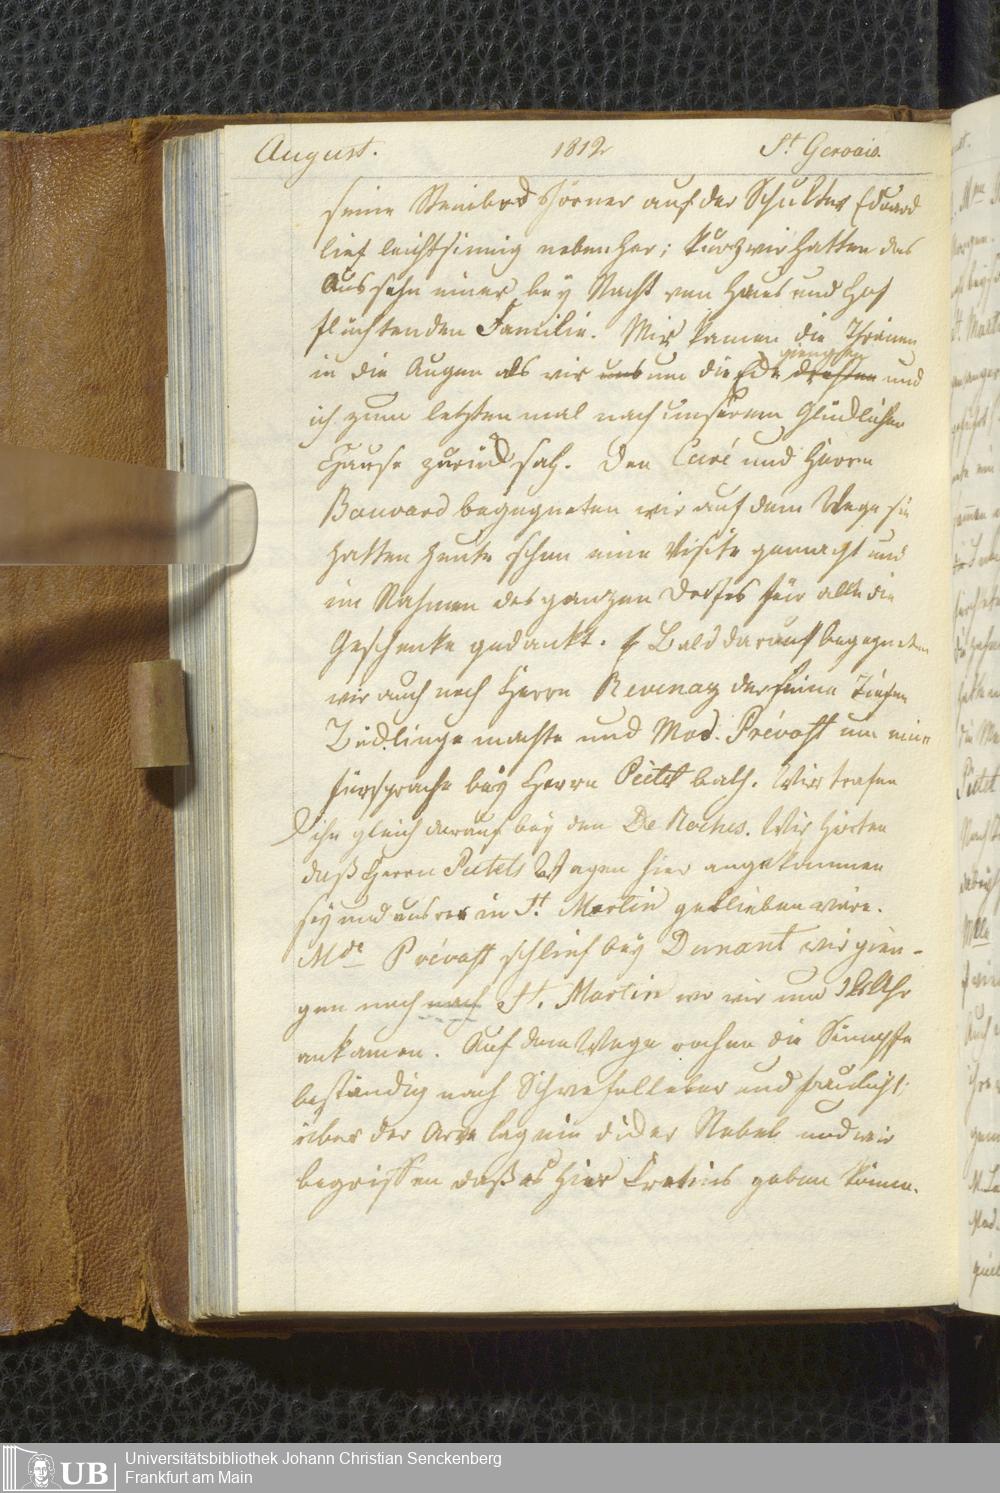 August. 1812 St Gervais.
seine Steinbock Hörner auf der Schulter Eduard
lief leichtsinnig nebenher; kurz wir hatten das
Aussehn einer bey Nacht von Haus und Hof
flüchtenden Familie. Mir kamen die Thränen
giengen
in die Augen als wir uns um die Ecke drehten und
ich zum letzten mal nach unserem Glücklichen
Hause zurück sah. Den Curé und Herrn
Bouvard begegneten wir auf dem Wege sie
hatten heute schon eine Visite gemacht und
im Nahmen des ganzen Dorfes für alle die
Geschenke gedankt. Bald darauf begegneten
wir auch noch Herrn Revenaz der seine tiefen
Bücklinge machte und Mad. Prévost um eine
fürsprache bey Herrn Pictet bath. Wir trafen
ihn gleich darauf bey den De Roches. Wir hörten
daß Herrn Pictets Wagen hier angekommen
sey und unsres in St. Martin geblieben wäre.
Mde Prévost schlief bey Dunant wir gien-
gen noch nach St. Martin wo wir um Uhr
ankamen. Auf dem Wege rochen die Sümpfe
beständig nach Schwefelleber und faulicht;
über der Arve lag ein dicker Nebel und wir
begriffen daß es hier Cretins geben könne.
Universitätsbibliothek Johann Christian Senckenberg
Frankfurt am Main
UB